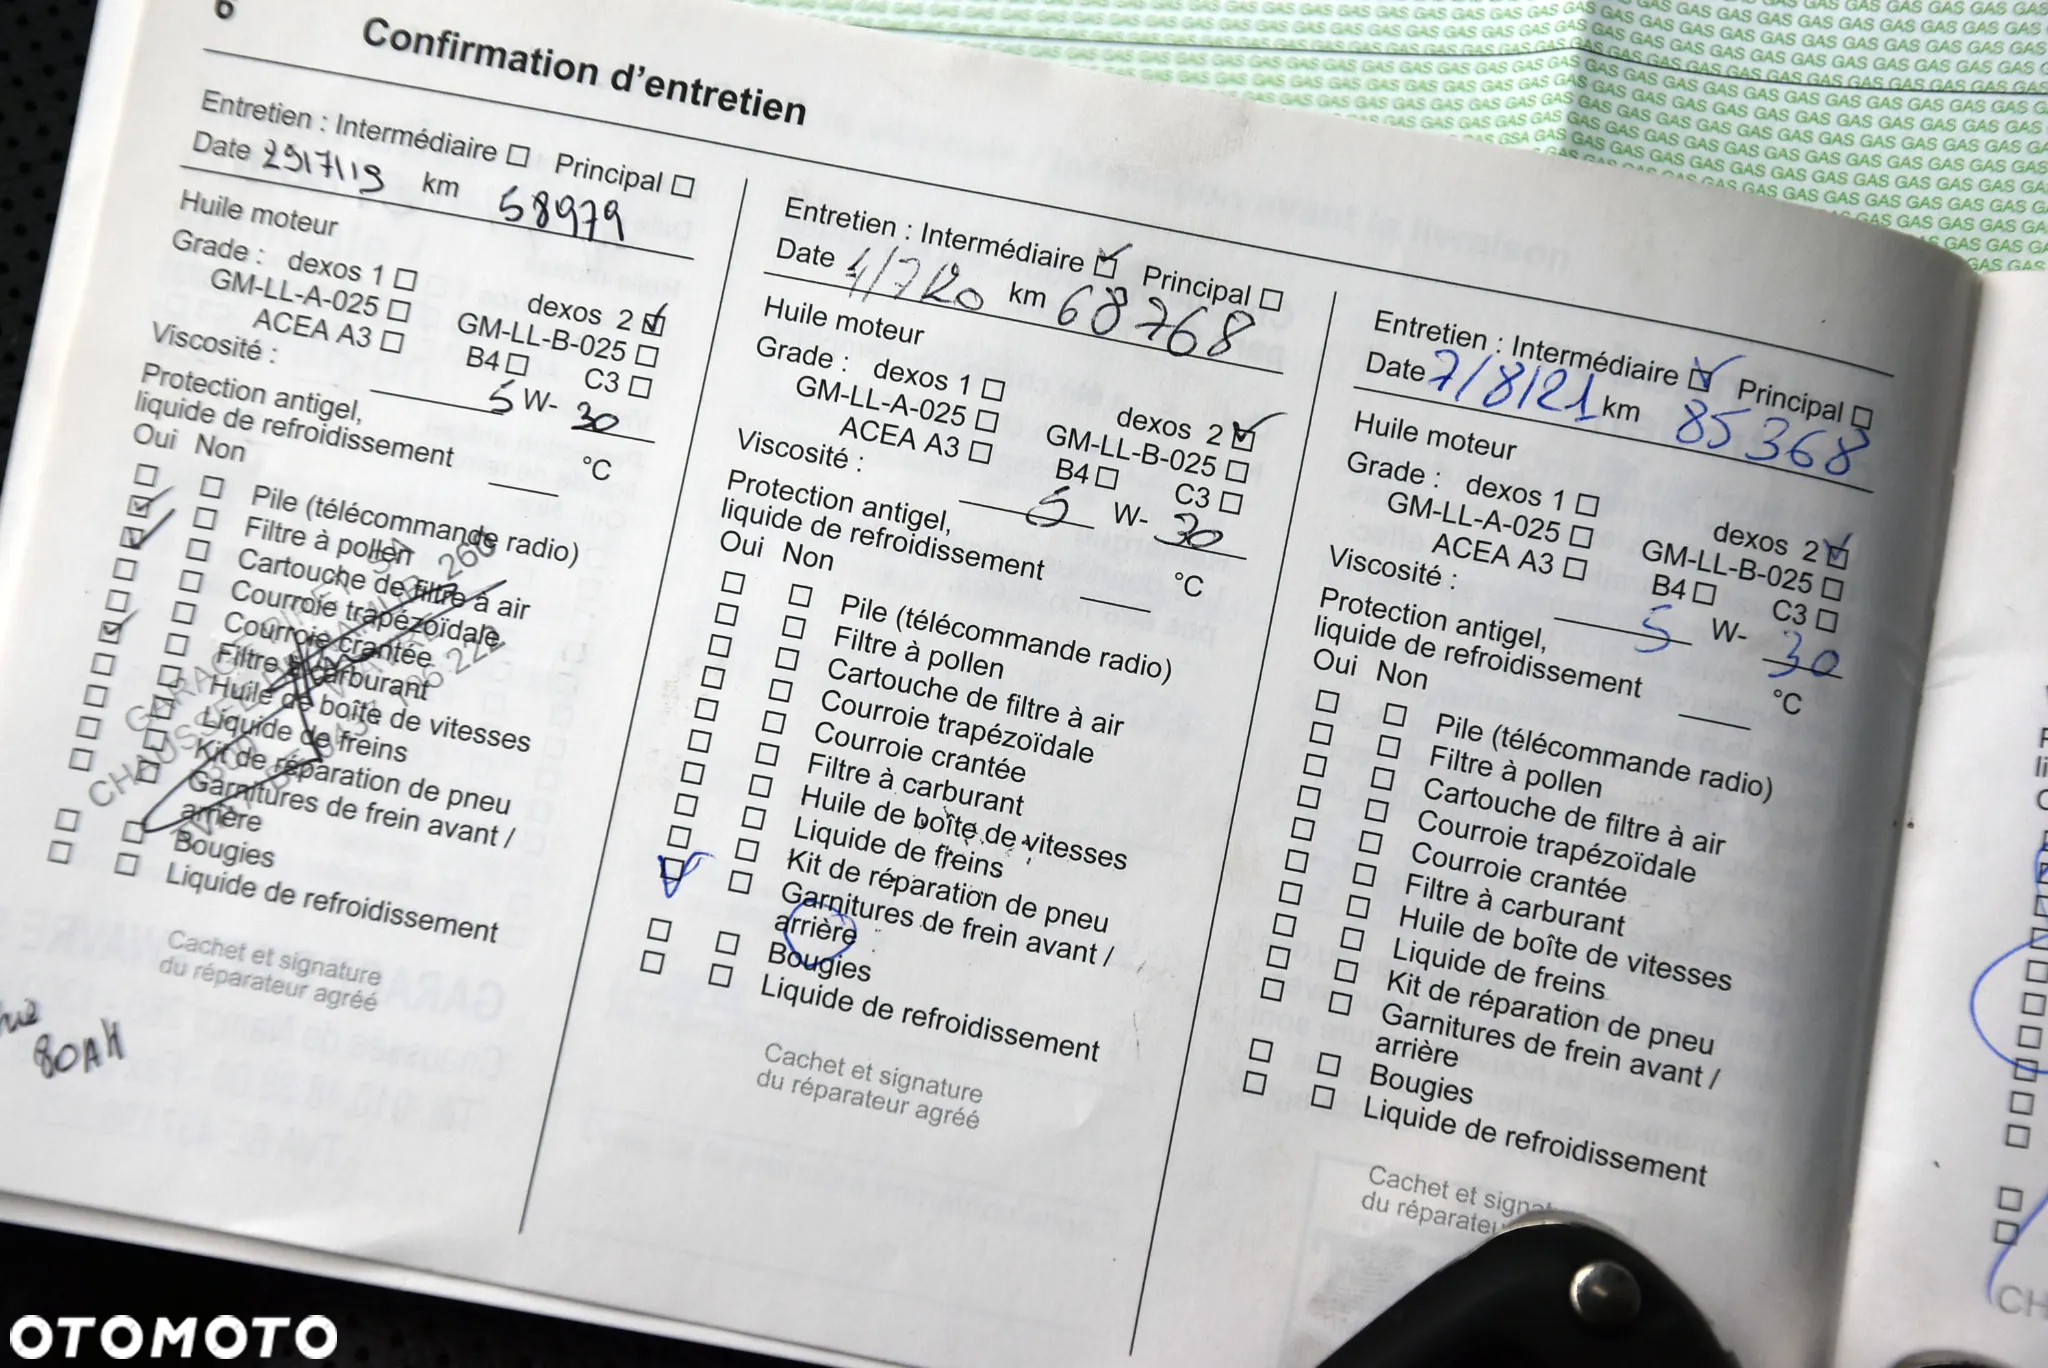 6
Confirmation d'entretien
Entretien : Intermédiaire Principal
Date 29/7/19 km 58979
Huile moteur
Grade : dexos 1 dexos 2
GM-LL-A-025 GM-LL-B-025
ACEA A3 B4 C3
Viscosité : 5 W- 30
Protection antigel,
liquide de refroidissement °C
Oui Non
Pile (télécommande radio)
Filtre à pollen
Cartouche de filtre à air
Courroie trapézoïdale
Courroie crantée
Filtre à carburant
Huile de boîte de vitesses
Liquide de freins
Kit de réparation de pneu
Garnitures de frein avant /
arrière
Bougies
Liquide de refroidissement
Cachet et signature
du réparateur agréé
80AH
Entretien : Intermédiaire Principal
Date 1/7/20 km 68768
Huile moteur
Grade : dexos 1 dexos 2
GM-LL-A-025 GM-LL-B-025
ACEA A3 B4 C3
Viscosité : 5 W- 30
Protection antigel,
liquide de refroidissement °C
Oui Non
Pile (télécommande radio)
Filtre à pollen
Cartouche de filtre à air
Courroie trapézoïdale
Courroie crantée
Filtre à carburant
Huile de boîte de vitesses
Liquide de freins
Kit de réparation de pneu
Garnitures de frein avant /
arrière
Bougies
Liquide de refroidissement
Cachet et signature
du réparateur agréé
Entretien : Intermédiaire Principal
Date 7/8/21 km 85368
Huile moteur
Grade : dexos 1 dexos 2
GM-LL-A-025 GM-LL-B-025
ACEA A3 B4 C3
Viscosité : 5 W- 30
Protection antigel,
liquide de refroidissement °C
Oui Non
Pile (télécommande radio)
Filtre à pollen
Cartouche de filtre à air
Courroie trapézoïdale
Courroie crantée
Filtre à carburant
Huile de boîte de vitesses
Liquide de freins
Kit de réparation de pneu
Garnitures de frein avant /
arrière
Bougies
Liquide de refroidissement
Cachet et
du
OTOMOTO